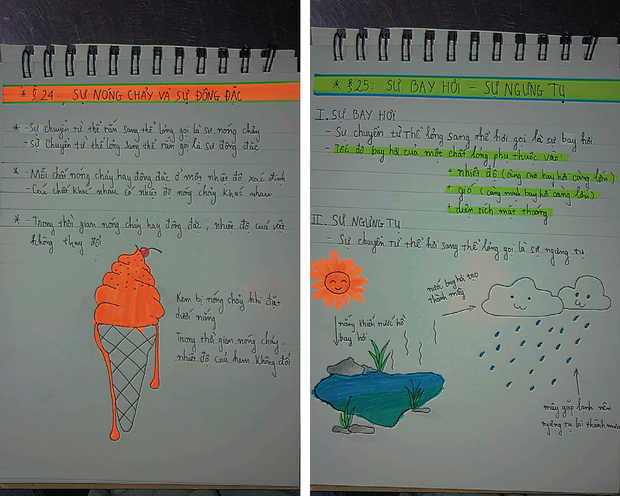 * § 24: SỰ NÓNG CHẢY VÀ SỰ ĐÔNG ĐẶC
* - Sự chuyển từ thể rắn sang thể lỏng gọi là sự nóng chảy
- Sự chuyển từ thể lỏng sang thể rắn gọi là sự đông đặc
* - Mỗi chất nóng chảy hay đông đặc ở một nhiệt độ xác định
- Các chất khác nhau có nhiệt độ nóng chảy khác nhau
* - Trong thời gian nóng chảy hay đông đặc, nhiệt độ của vật
không thay đổi
Kem bị nóng chảy khi đặt
dưới nắng
Trong thời gian nóng chảy,
nhiệt độ của kem không đổi
* § 25: SỰ BAY HƠI - SỰ NGƯNG TỤ
I. SỰ BAY HƠI
- Sự chuyển từ thể lỏng sang thể hơi gọi là sự bay hơi
- Tốc độ bay hơi của một chất lỏng phụ thuộc vào
+ nhiệt độ (càng cao bay hơi càng lớn)
+ gió (càng mạnh bay hơi càng lớn)
+ diện tích mặt thoáng
II. SỰ NGƯNG TỤ
- Sự chuyển từ thể hơi sang thể lỏng gọi là sự ngưng tụ
nước bay hơi tạo
thành mây
nắng khiến nước hồ
bay hơi
mây gặp lạnh nên
ngưng tụ lại thành mưa